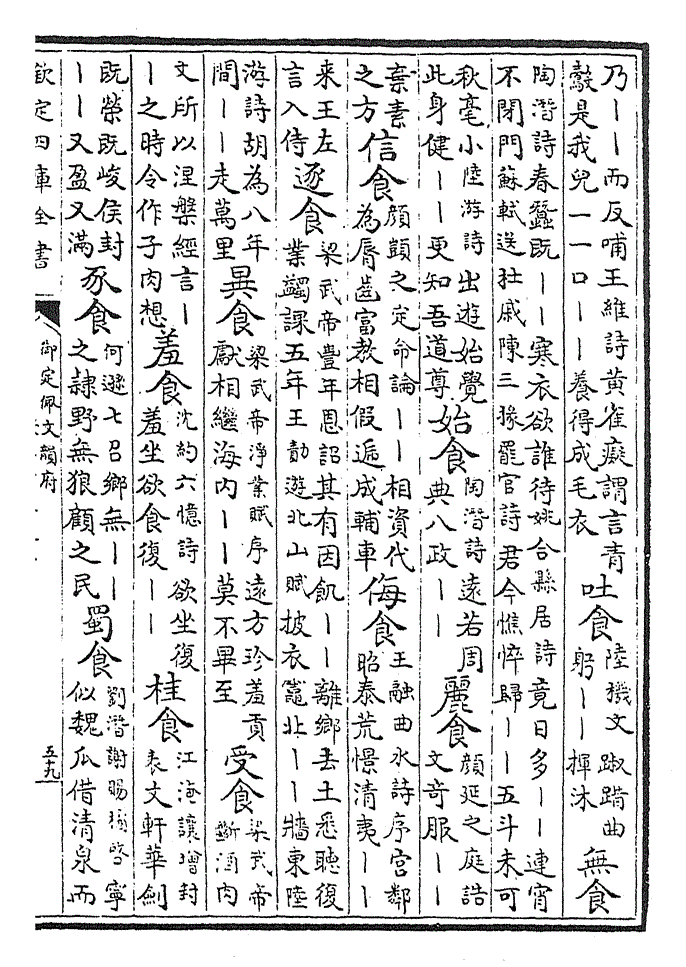 乃丨丨而反哺王維詩黃雀癡謂言青
㲉是我兒一一口丨丨養得成毛衣
吐食
陸機文踧踖曲
躬丨丨揮沐
無食
陶潜詩春蠶既丨丨寒衣欲誰待姚合縣居詩竟日多丨丨連宵
不閉門蘇軾送杜戚陳三掾罷官詩君今憔悴歸丨丨五斗未可
秋毫小陸游詩出遊始覺
此身健丨丨更知吾道尊
始食
陶潜詩遠若周
典八政丨丨
麗食
顔延之庭誥
文奇服丨丨
棄素
之方
信食
顔顗之定命論丨丨相資代
為脣齒富教相假遞成輔車
侮食
王融曲水詩序宫鄰
昭泰荒憬清夷丨丨
来王左
言入侍
逐食
梁武帝豐年恩詔其有因飢丨丨離鄉去土悉聴復
業蠲課五年王勣遊北山賦披衣竈北丨丨牆東陸
游詩胡為八年
間丨丨走萬里
異食
梁武帝淨業賦序遠方珍羞貢
獻相繼海内丨丨莫不畢至
受食
梁武帝
斷酒肉
文所以涅槃經言丨
丨之時令作子肉想
羞食
沈約六憶詩欲坐復
羞坐欲食復丨丨
桂食
江淹讓增封
表文軒華劍
既榮既峻侯封
丨丨又盈又滿
豕食
何遜七召鄉無丨丨
之隷野無狼顧之民
蜀食
劉潜謝賜啓寧
似魏瓜借清泉而
欽定四庫全書
御定佩文韻府
五十九